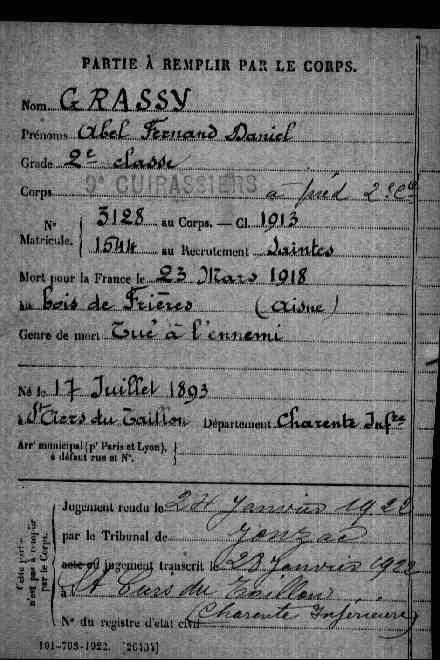 PARTIE À REMPLIR PAR LE CORPS.
Nom GRASSY
Prénoms Abel Fernand Daniel
Grade 2e classe
Corps 9e CUIRASSIERS à pied 2e Cie
N° Matricule. 3128 au Corps. — Cl. 1913
1544 au Recrutement Saintes
Mort pour la France le 23 Mars 1918
au bois de Frières (Aisne)
Genre de mort Tué à l'ennemi
Né le 17 Juillet 1893
à St Ciers du Taillon Département Charente Infre
Arr' municipal (p' Paris et Lyon),
à défaut rue et N°.
Cette partie n'est pas à remplir par le Corps.
Jugement rendu le 24 Janvier 1922
par le Tribunal de Jonzac
acte ou jugement transcrit le 28 Janvier 1922
à St Ciers du Taillon
(Charente Inférieure)
N° du registre d'état civil
101-708-1922. [26434]